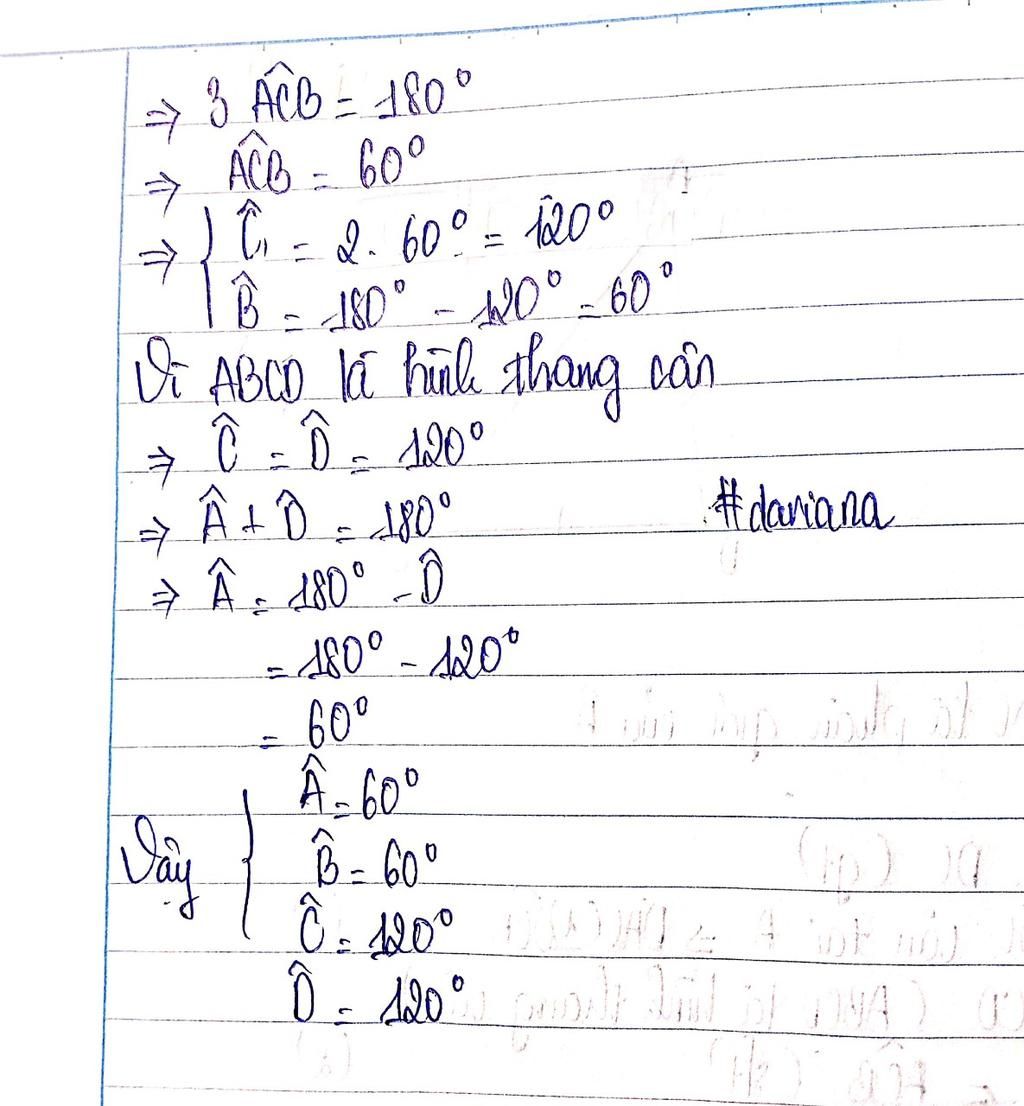 ⇒ 3 ACB̂ = 180°
⇒ ACB̂ = 60°
⇒ { Ĉ₁ = 2. 60° = 120°
B̂ = 180° - 120° = 60°
Vì ABCD là hình thang cân
⇒ Ĉ = D̂ = 120°
⇒ Â + D̂ = 180°
#dariana
⇒ Â = 180° - D̂
= 180° - 120°
= 60°
Vậy { Â = 60°
B̂ = 60°
Ĉ = 120°
D̂ = 120°